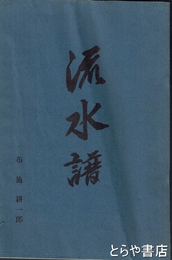 流水譜
布施耕一郎
とらや書店